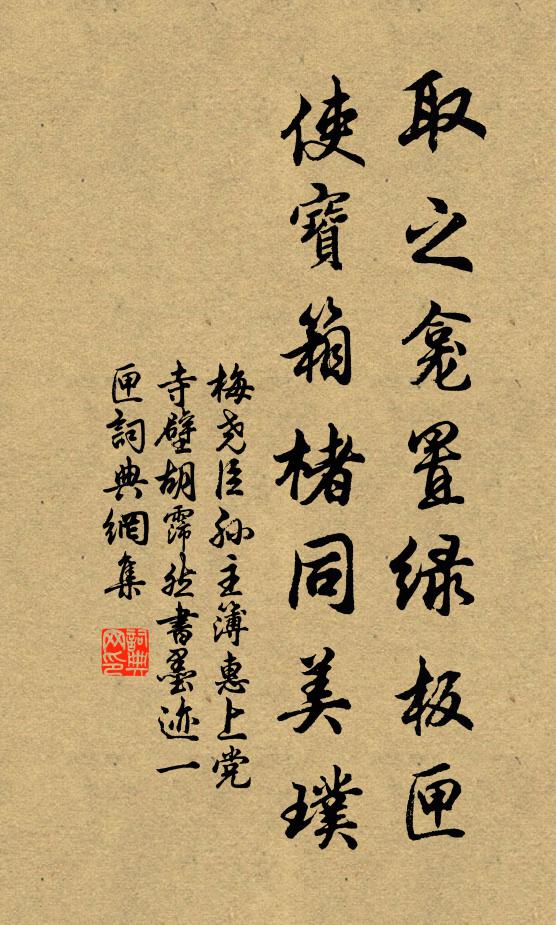 取之龛置绿板匣
使寶箱楮同美璞
梅尧臣孙主簿惠上党
寺壁胡霈然書墨迹一
匣詞典網集
詞典
网印